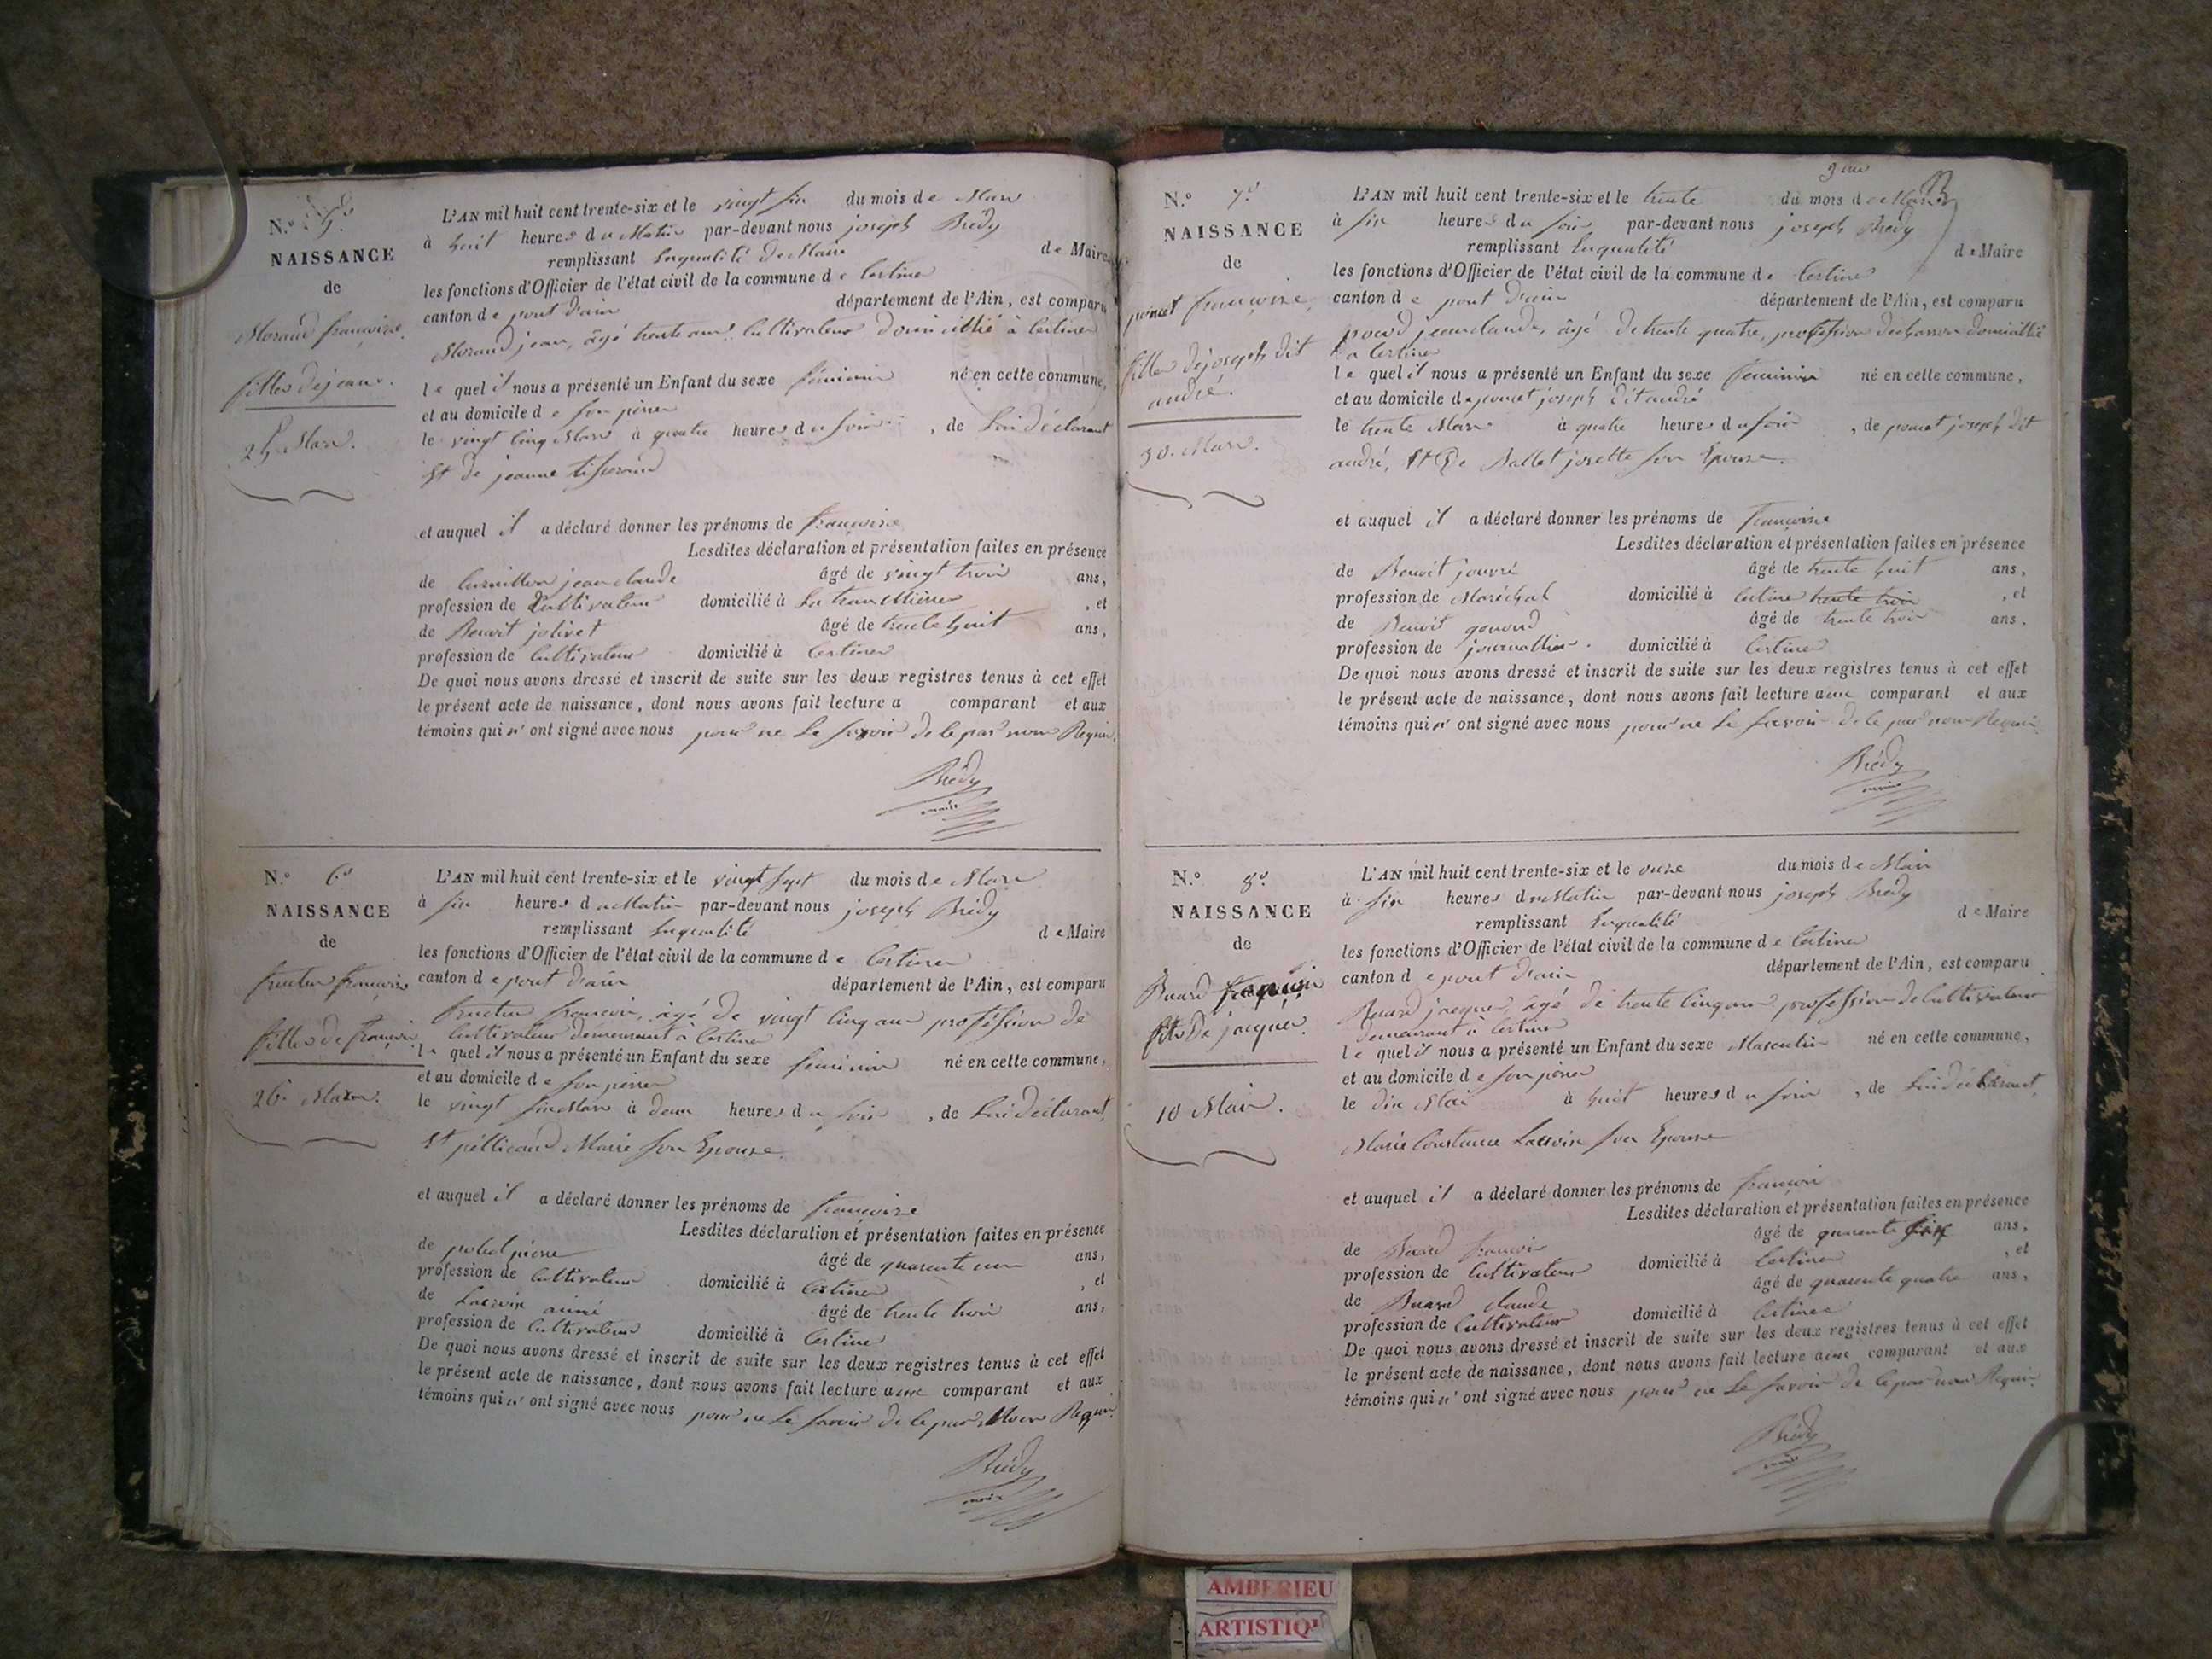 N.º 5º
NAISSANCE
de
Morand françoise
fille de jean.
25 Mars.
L'AN mil huit cent trente-six et le vingt six du mois de Mars
à huit heures du Matin par-devant nous joseph Brédy
remplissant Enqualité de Maire de Maire
les fonctions d'Officier de l'état civil de la commune de Certines
canton de pont d'ain département de l'Ain, est comparu
Morand jean, âgé trente ans Cultivateur domicillié à Certines
le quel il nous a présenté un Enfant du sexe féminin né en cette commune,
et au domicile de son père
le vingt cinq Mars à quatre heures du soir, de Lui déclarant
Et de jeanne tisserand
et auquel il a déclaré donner les prénoms de françoise
Lesdites déclaration et présentation faites en présence
de jean claude âgé de vingt trois ans,
profession de Cultivateur domicilié à La tranclière, et
de Benoit jolivet âgé de trente huit ans,
profession de Cultivateur domicilié à Certines
De quoi nous avons dressé et inscrit de suite sur les deux registres tenus à cet effet
le présent acte de naissance, dont nous avons fait lecture a comparant et aux
témoins qui n'ont signé avec nous pour ne Le savoir de le par nous Requis.
Brédy
maire
N.º 6º
NAISSANCE
de
françoise
fille de françois
26 Mars.
L'AN mil huit cent trente-six et le vingt sept du mois de Mars
à six heures du Matin par-devant nous joseph Brédy
remplissant Enqualité de Maire
les fonctions d'Officier de l'état civil de la commune de Certines
canton de pont d'ain département de l'Ain, est comparu
françois, âgé de vingt cinq ans profession de
Cultivateur demeurant à Certines
le quel il nous a présenté un Enfant du sexe féminin né en cette commune,
et au domicile de son père
le vingt six Mars à deux heures du soir, de Lui déclarant
Et pélicand Marie son Epouse
et auquel il a déclaré donner les prénoms de françoise
Lesdites déclaration et présentation faites en présence
de pierre âgé de quarente un ans,
profession de Cultivateur domicilié à Certines, et
de Lacroix aimé âgé de trente trois ans,
profession de Cultivateur domicilié à Certines
De quoi nous avons dressé et inscrit de suite sur les deux registres tenus à cet effet
le présent acte de naissance, dont nous avons fait lecture aux comparant et aux
témoins qui n'ont signé avec nous pour ne Le savoir de le par Nous Requis.
Brédy
maire
N.º 7º
NAISSANCE
de
poncet françoise
fille de joseph dit
andré.
30 Mars.
L'AN mil huit cent trente-six et le trente du mois de Mars
à six heures du soir par-devant nous joseph Brédy
remplissant Enqualité de Maire
les fonctions d'Officier de l'état civil de la commune de Certines
canton de pont d'ain département de l'Ain, est comparu
jean claude, âgé de trente quatre, profession domicillié
a Certines
le quel il nous a présenté un Enfant du sexe feminin né en cette commune,
et au domicile de poncet joseph dit andré
le trente Mars à quatre heures du soir, de poncet joseph dit
andré, Et De Ballet josette son Epouse.
et auquel il a déclaré donner les prénoms de françoise
Lesdites déclaration et présentation faites en présence
de Benoit âgé de trente huit ans,
profession de Maréchal domicilié à Certines trente trois, et
de Benoit âgé de trente trois ans,
profession de journallier. domicilié à Certines
De quoi nous avons dressé et inscrit de suite sur les deux registres tenus à cet effet
le présent acte de naissance, dont nous avons fait lecture aux comparant et aux
témoins qui n'ont signé avec nous pour ne Le savoir de le par nous Requis.
Brédy
maire
N.º 8º
NAISSANCE
de
Buard françois
fils de jacques.
10 Mai.
L'AN mil huit cent trente-six et le onze du mois de Mai
à six heures du Matin par-devant nous joseph Brédy
remplissant Enqualité de Maire
les fonctions d'Officier de l'état civil de la commune de Certines
canton de pont d'ain département de l'Ain, est comparu
Buard jacques, âgé de trente cinq ans profession de Cultivateur
demeurant à Certines
le quel il nous a présenté un Enfant du sexe Masculin né en cette commune,
et au domicile de son père
le dix Mai à huit heures du soir, de Lui déclarant,
Marie Constance Lacroix son Epouse
et auquel il a déclaré donner les prénoms de françois
Lesdites déclaration et présentation faites en présence
de Buard françois âgé de quarente six ans,
profession de Cultivateur domicilié à Certines, et
de Buard claude âgé de quarente quatre ans,
profession de Cultivateur domicilié à Certines
De quoi nous avons dressé et inscrit de suite sur les deux registres tenus à cet effet
le présent acte de naissance, dont nous avons fait lecture aux comparant et aux
témoins qui n'ont signé avec nous pour ne Le savoir de le par nous Requis.
Brédy
maire
AMBERIEU
ARTISTIQ